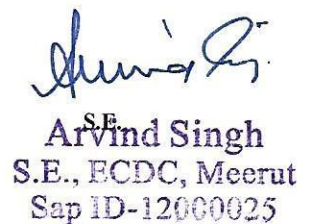 S.E.
Arvind Singh
S.E., ECDC, Meerut
Sap ID-12000025